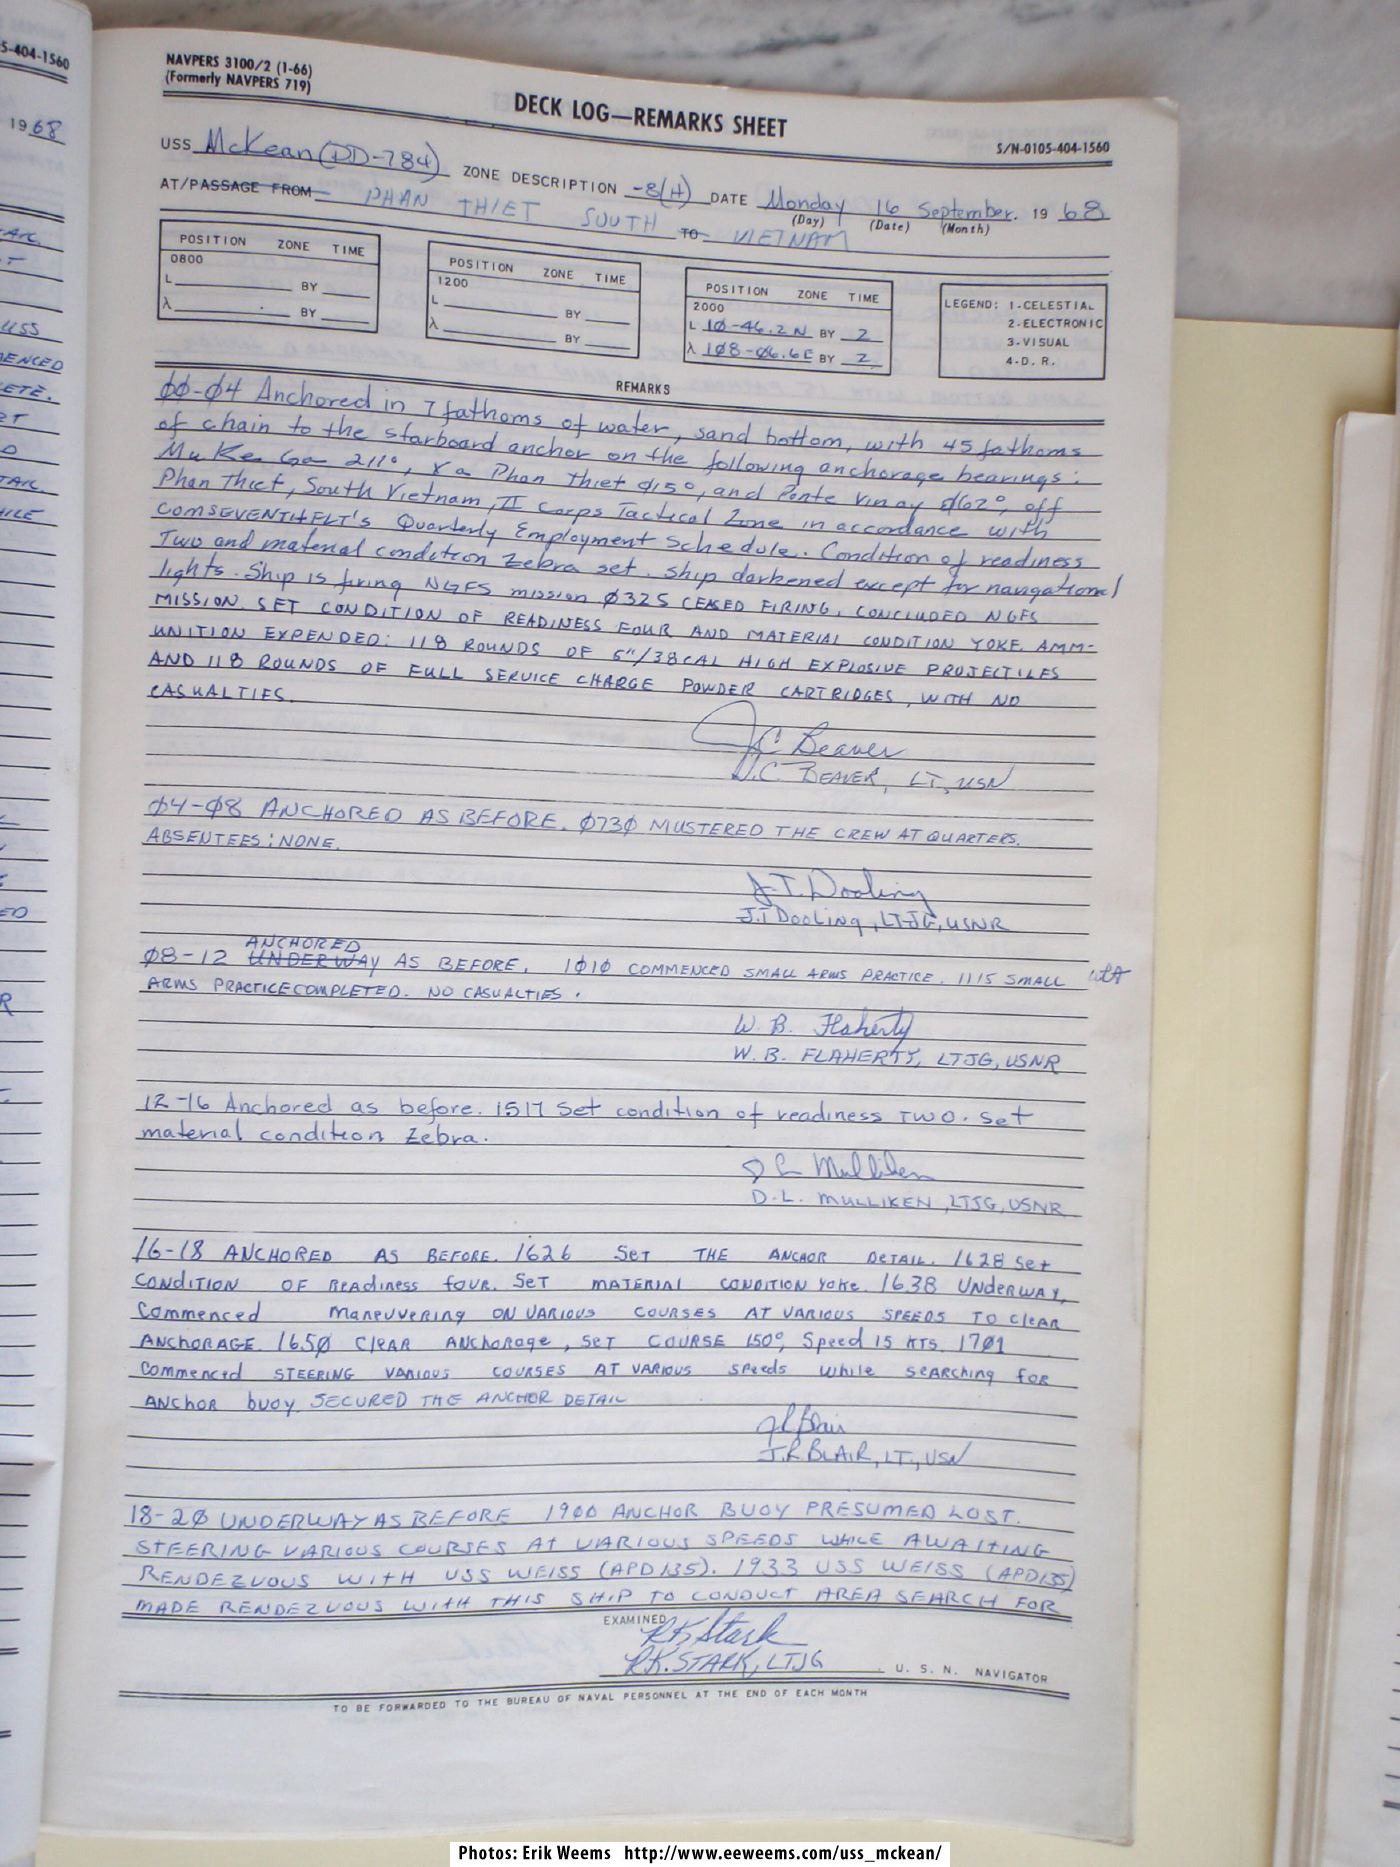 5-404-1560
1968
NAVPERS 3100/2 (1-66)
(Formerly NAVPERS 719)
DECK LOG—REMARKS SHEET
S/N-0105-404-1560
USS McKean (DD-784) ZONE DESCRIPTION -8(H) DATE Monday 16 September. 1968
(Day) (Date) (Month)
AT/PASSAGE FROM PHAN THIET SOUTH TO VIETNAM
POSITION ZONE TIME
0800
L BY
λ BY
POSITION ZONE TIME
1200
L BY
λ BY
POSITION ZONE TIME
2000
L 10-46.2N BY 2
λ 108-06.6E BY 2
LEGEND: 1-CELESTIAL
2-ELECTRONIC
3-VISUAL
4-D. R.
REMARKS
ØØ-Ø4 Anchored in 7 fathoms of water, sand bottom, with 45 fathoms
of chain to the starboard anchor on the following anchorage bearings:
Mu Ke Ga 211°, Phan Thiet Ø15°, and Pointe Vinay Ø62°, off
Phan Thiet, South Vietnam, II Corps Tactical Zone in accordance with
COMSEVENTHFLT'S Quarterly Employment Schedule. Condition of readiness
Two and material condition Zebra set. Ship darkened except for navigational
lights. Ship is firing NGFS mission Ø325 CEASED FIRING, CONCLUDED NGFS
MISSION. SET CONDITION OF READINESS FOUR AND MATERIAL CONDITION YOKE. AMM-
UNITION EXPENDED: 118 ROUNDS OF 5"/38CAL HIGH EXPLOSIVE PROJECTILES
AND 118 ROUNDS OF FULL SERVICE CHARGE POWDER CARTRIDGES, WITH NO
CASUALTIES.
JC Beaver
J.C. BEAVER, LT, USN
Ø4-Ø8 ANCHORED AS BEFORE. Ø73Ø MUSTERED THE CREW AT QUARTERS.
ABSENTEES: NONE.
J.T. Dooling
J.T Dooling, LTJG, USNR
ANCHORED
Ø8-12 UNDERWAY AS BEFORE. 1Ø1Ø COMMENCED SMALL ARMS PRACTICE. 1115 SMALL
ARMS PRACTICE COMPLETED. NO CASUALTIES.
W. B. Flaherty
W. B. FLAHERTY, LTJG, USNR
12-16 Anchored as before. 1517 Set condition of readiness TWO. Set
material condition Zebra.
D L Mulliken
D.L. MULLIKEN, LTJG, USNR
16-18 ANCHORED AS BEFORE. 1626 SET THE ANCHOR DETAIL. 1628 Set
CONDITION OF READINESS FOUR. SET MATERIAL CONDITION YOKE. 1638 UNDERWAY,
Commenced Maneuvering ON VARIOUS COURSES AT VARIOUS SPEEDS TO CLEAR
ANCHORAGE. 165Ø CLEAR ANCHORAGE, SET COURSE 150°, Speed 15 KTS. 17Ø1
Commenced STEERING VARIOUS COURSES AT VARIOUS speeds while searching for
ANCHOR buoy. SECURED THE ANCHOR DETAIL
JR Blair
J.R BLAIR, LT., USN
18-2Ø UNDERWAY AS BEFORE 1900 ANCHOR BUOY PRESUMED LOST.
STEERING VARIOUS COURSES AT VARIOUS SPEEDS WHILE AWAITING
RENDEZVOUS WITH USS WEISS (APD135). 1933 USS WEISS (APD135)
MADE RENDEZVOUS WITH THIS SHIP TO CONDUCT AREA SEARCH FOR
EXAMINED
RK Stark
R.K. STARK, LTJG U. S. N. NAVIGATOR
TO BE FORWARDED TO THE BUREAU OF NAVAL PERSONNEL AT THE END OF EACH MONTH
Photos: Erik Weems http://www.eeweems.com/uss_mckean/